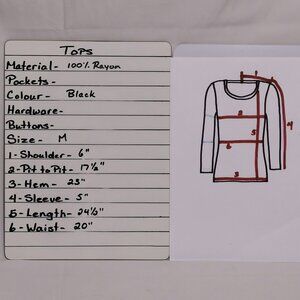 Tops
Material- 100% Rayon
Pockets-
Colour- Black
Hardware-
Buttons-
Size- M
1-Shoulder- 6"
2-Pit to Pit- 17½"
3-Hem- 23"
4-Sleeve- 5"
5-Length- 24½"
6-Waist- 20"
1
2
4
5
6
3